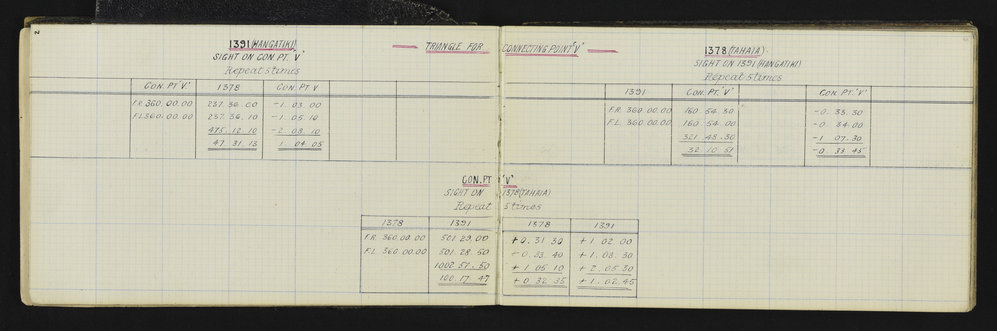 2
TRIANGLE FOR CONNECTING POINT "V"
1391 (HANGATIKI)
SIGHT ON CON. PT. "V"
Repeat 5 times
CON. PT "V" 1378 CON. PT V
F.R. 360.00.00 237.36.00 -1.03.00
F.L. 360.00.00 237.36.10 -1.05.10
475.12.10 -2.08.10
47.31.13 1.04.05
1378 (TAHAIA)
SIGHT ON 1391 (HANGATIKI)
Repeat 5 times
1391 CON. PT. "V" CON. PT. "V"
F.R. 360.00.00 160.54.30 -0.33.30
F.L. 360.00.00 160.54.00 -0.34.00
321.48.30 -1.07.30
32.10.51 -0.33.45
CON. PT "V"
SIGHT ON 1378 (TAHAIA)
Repeat 5 times
1378 1391 1378 1391
F.R. 360.00.00 501.29.00 +0.31.30 +1.02.00
F.L. 360.00.00 501.28.50 +0.33.40 +1.03.30
1002.57.50 +1.05.10 +2.05.30
100.17.47 +0.32.35 +1.02.45